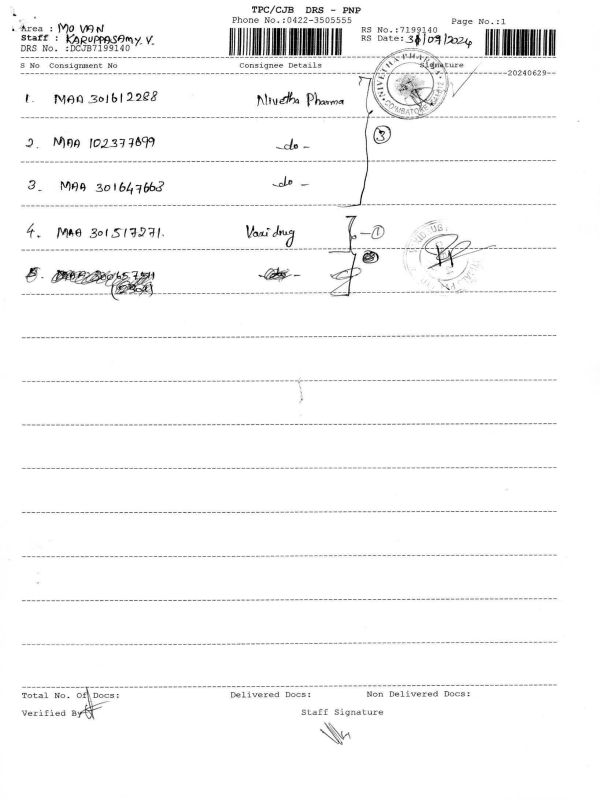 TPC/CJB DRS - PNP
Phone No.:0422-3505555 Page No.:1
Area : MO VAN RS No.:7199140
Staff : KARUPPASAMY. V. RS Date: 31/09/2024
DRS No. :DCJB7199140
S No Consignment No Consignee Details Signature
20240629
NIVETHA PHARMA
COIMBATORE
1. MAA 301612288 Nivetha Pharma
3
2. MAA 102377699 -do-
3. MAA 301647663 -do-
4. MAA 301517271. Vaxidrug 1
5.
Total No. Of Docs: Delivered Docs: Non Delivered Docs:
Verified By
Staff Signature